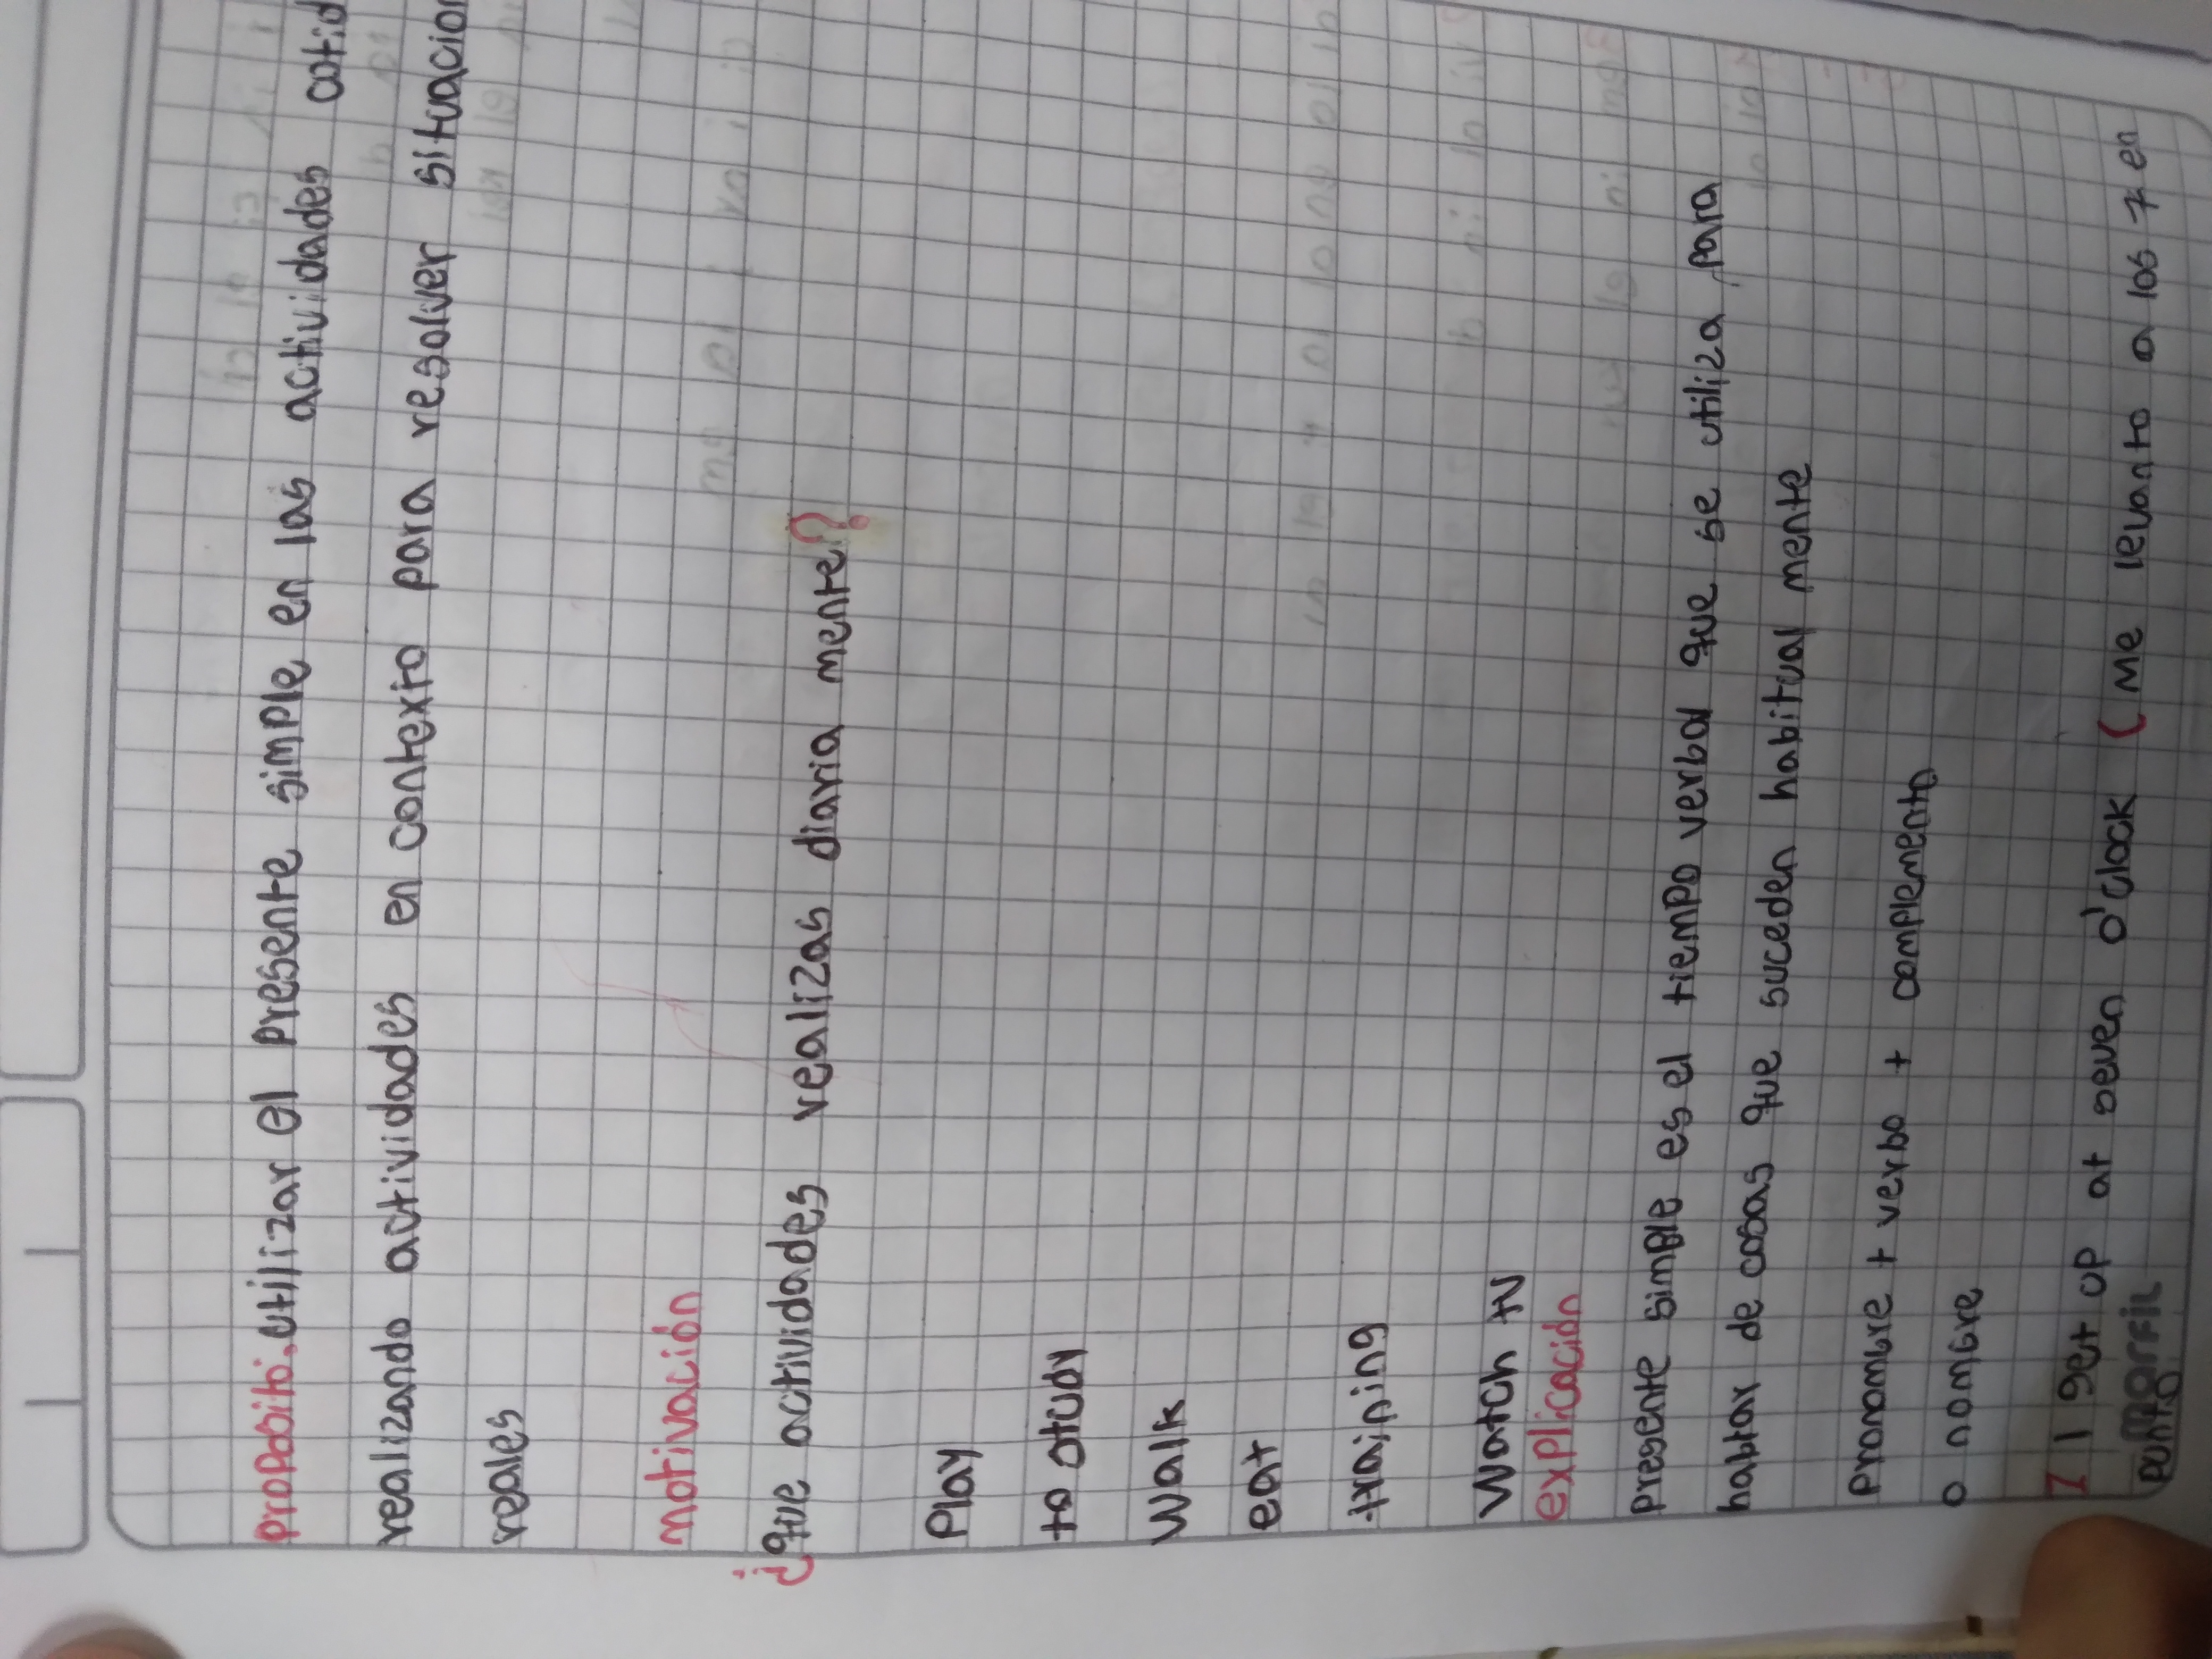 proposito. utilizar el presente simple en las actividades cotid
realizando actividades en contexto para resolver situacion
reales
motivación
¿que actividades realizas diaria mente?
Play
to study
walk
eat
training
Watch tv
explicación
presente simple es el tiempo verbal que se utiliza para
hablar de cosas que suceden habitual mente
pronombre + verbo + complemento
o nombre
1 I get up at seven o'clock ( me levanto a las 7 en
punto